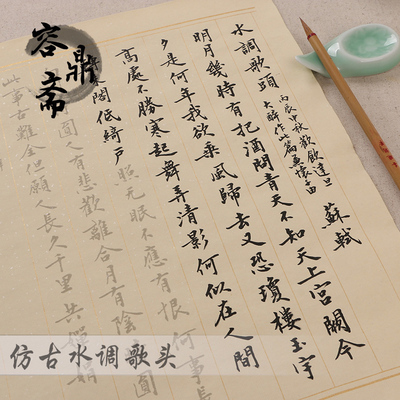 容鼎斋
水調歌頭
丙辰中秋歡飲達旦
大醉作此篇兼懷子由
蘇軾
明月幾時有把酒問青天不知天上宮闕今
夕是何年我欲乘風歸去又恐瓊樓玉宇
高處不勝寒起舞弄清影何似在人間
閣低綺戶照无眠不應有恨何事長
圓人有悲歡離合月有陰晴圓
此事古難全但願人長久千里共嬋娟
仿古水调歌头